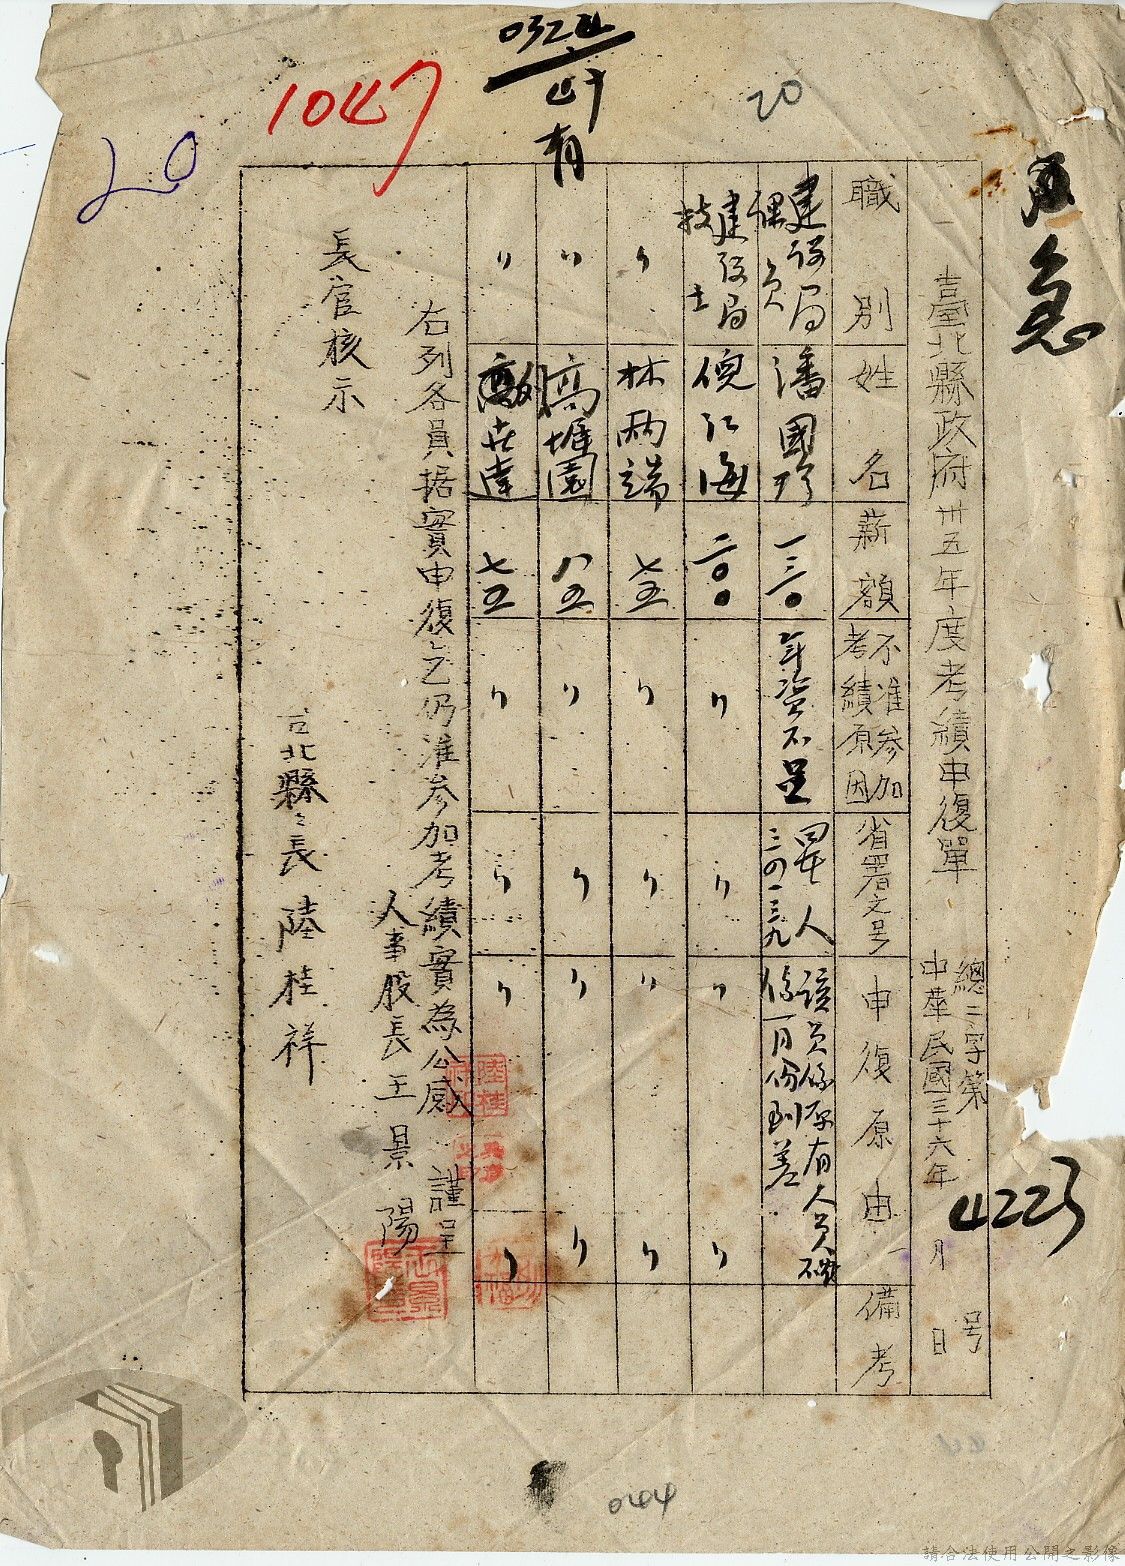 0324
有
1047
20
20
急
臺北縣政府卅五年度考績申復單
總二字第 4223 號
中華民國三十六年 月 日
職別 姓名 薪額 不准參加考績原因 省署文号 申復原由 備考
建設局課員 潘國珍 一三〇 年資不足 人 三四一三九 該員係原有人員確係一月份到差
建設局技士 倪江海 二〇〇 〃 〃 〃 〃
〃 林兩端 七五 〃 〃 〃 〃
〃 高墀園 八五 〃 〃 〃 〃
〃 七五 〃 〃 〃 〃
右列各員据實申復乞仍准参加考績實為公感 謹呈
長官核示
人事股長王景陽
台北縣々長陸桂祥
044
請合法使用公開之影像